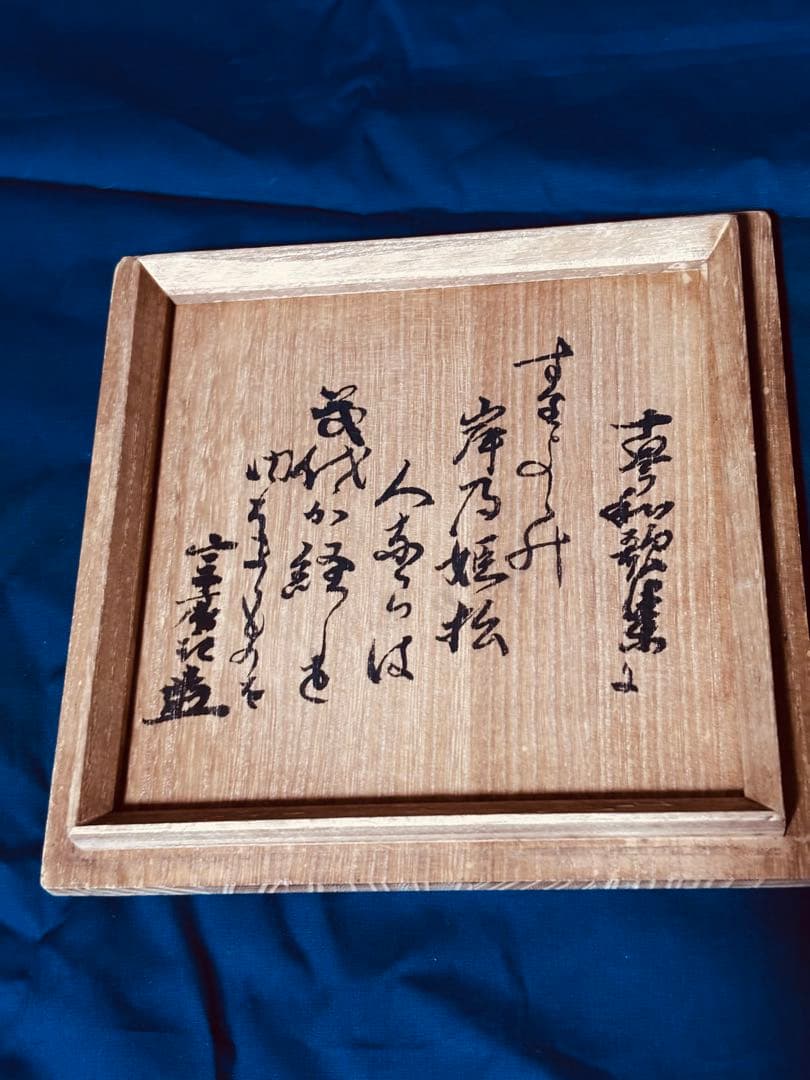 古今和歌集に
すみよしの
岸乃姫松
人ならは
幾代か経しと
問はましものを